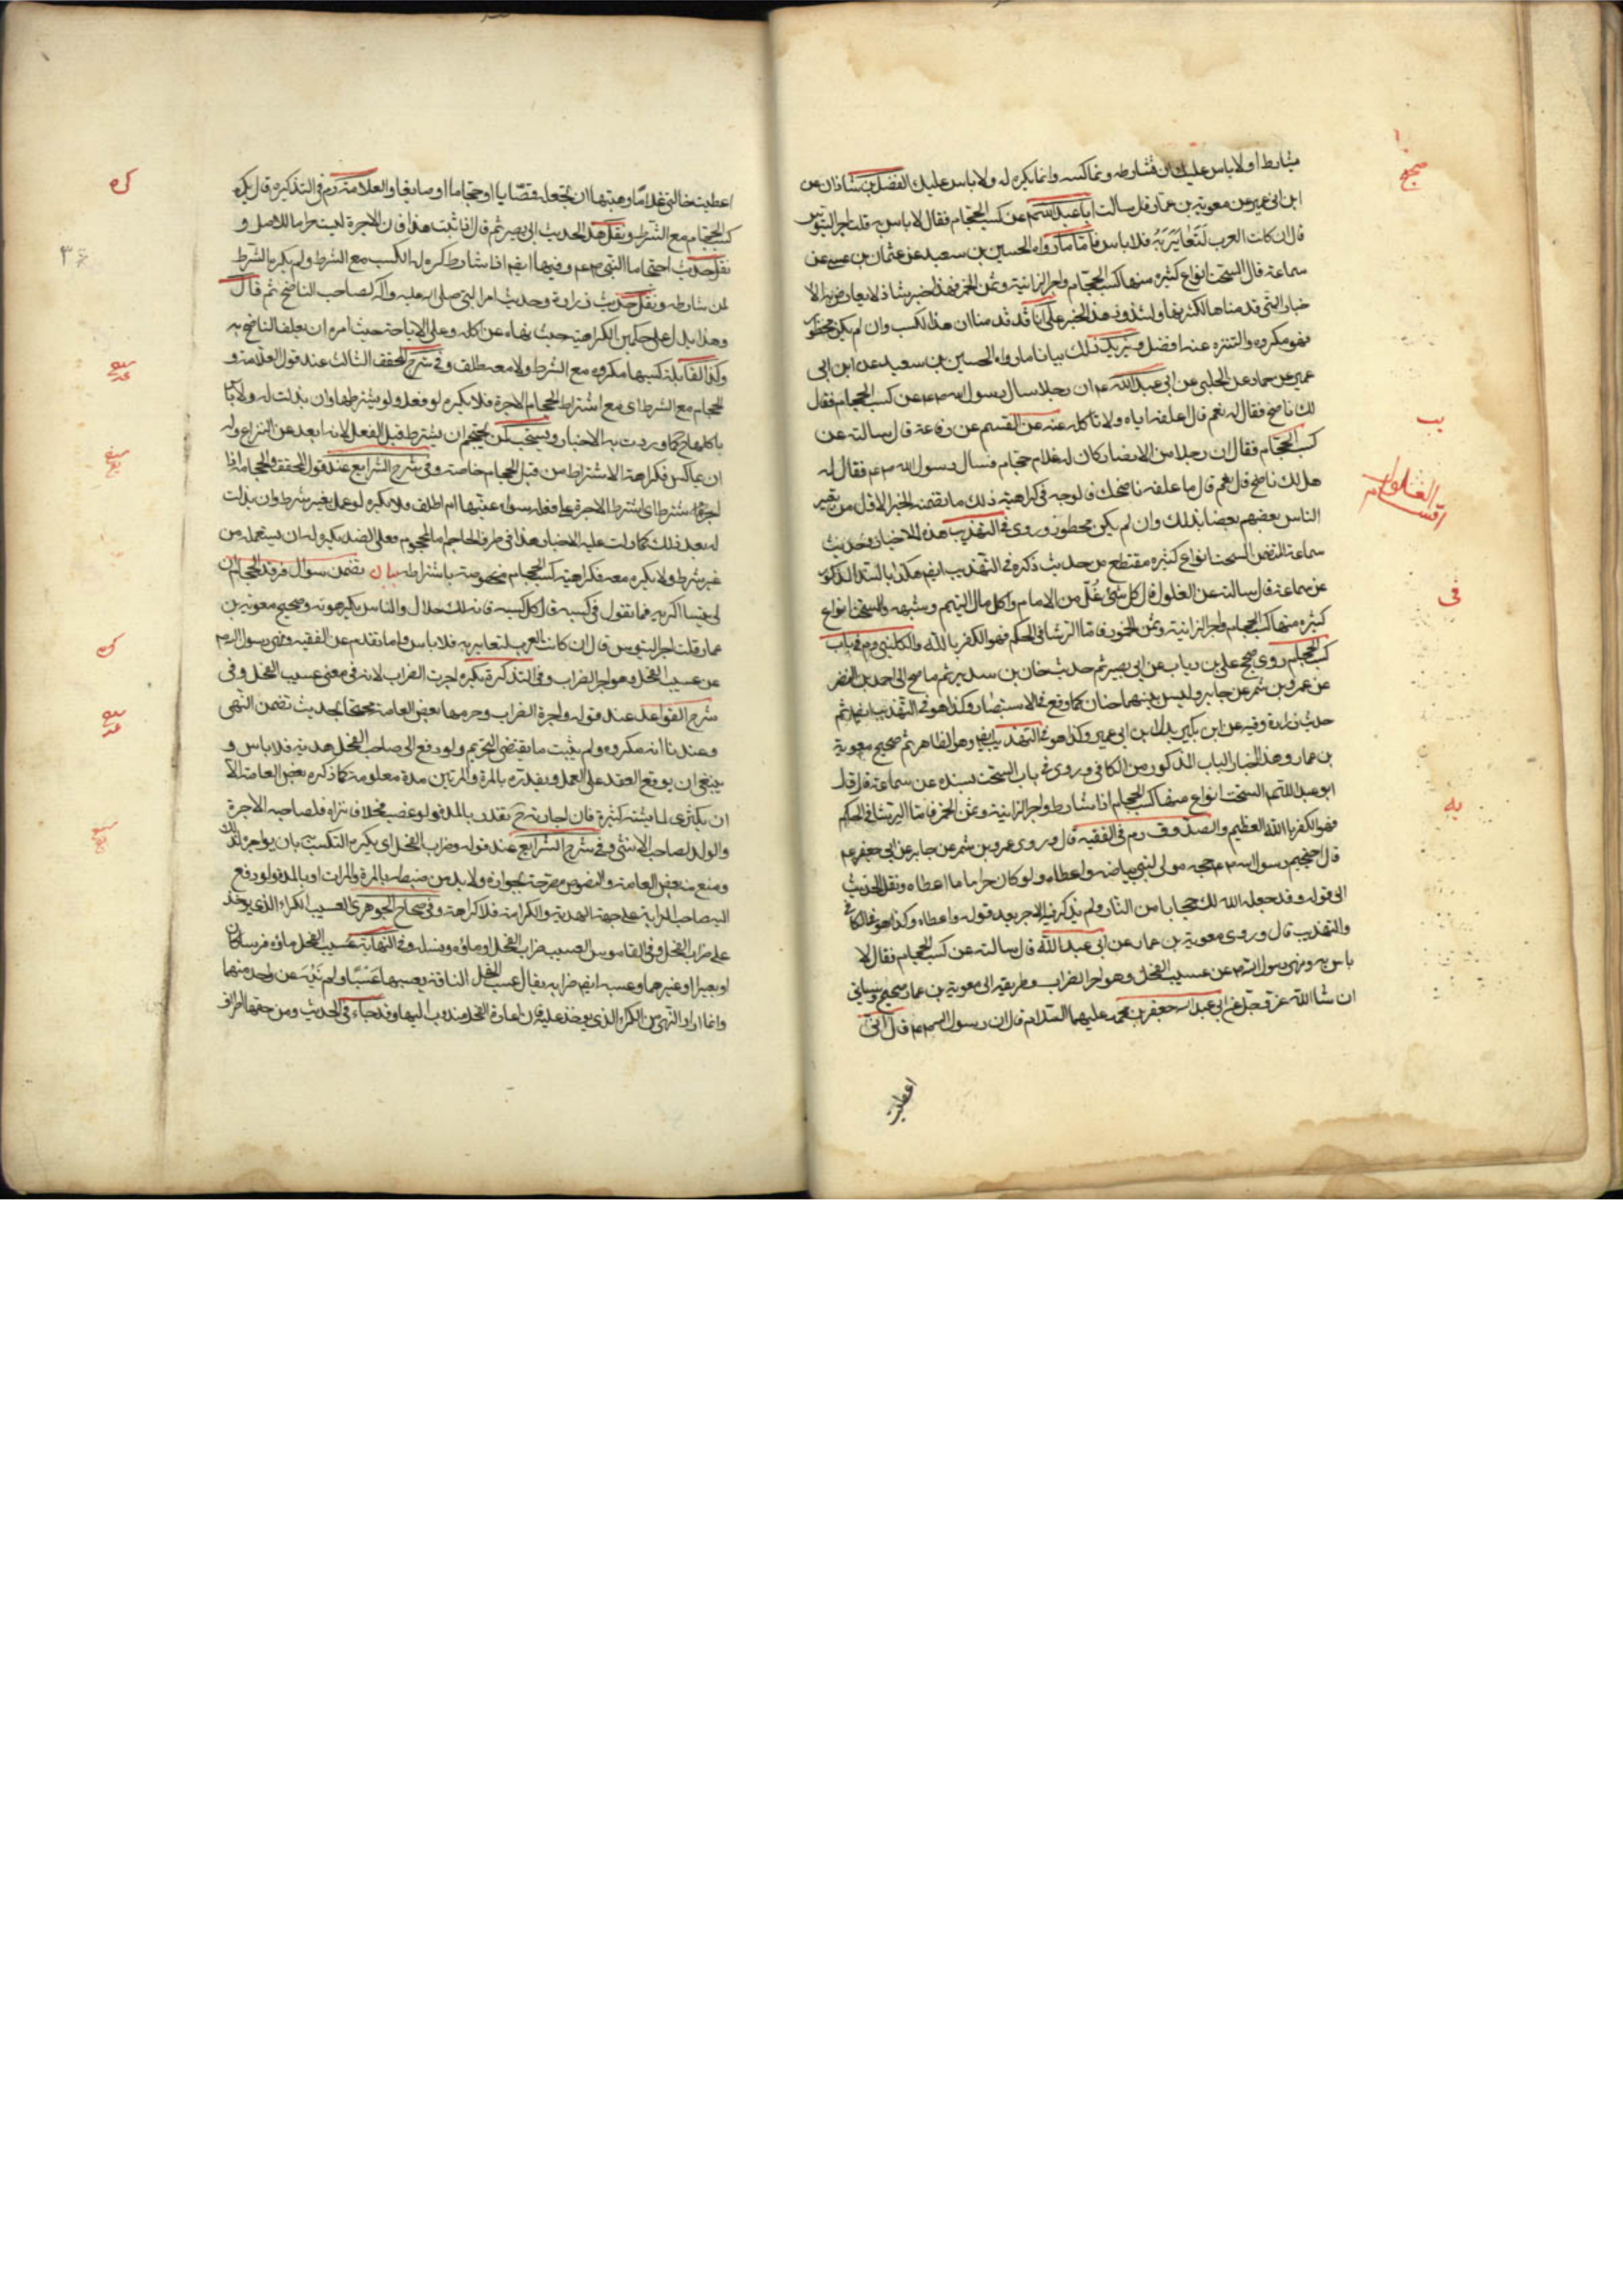 يشارط او لا باس عليك ان تشارطه وتماكسه وانما يكره له ولا باس عليك الفضل بن شاذان عن
ابن ابي عمير عن معوية بن عمار قال سالت ابا عبد الله عن كسب الحجام فقال لا باس به قلت اجر التيوس
قال ان كانت العرب لتعاير به فلا باس فاما ما رواه الحسين بن سعيد عن عثمان بن عيسى عن
سماعة قال السحت انواع كثيره منها كسب الحجام واجر الزانية وثمن الخمر فهذا خبر شاذ لا يعارض به الا
خبار التي قد مناها لكثرتها ولشذوذ هذا الخبر على انا قد قدمنا ان هذا الكسب وان لم يكن محظور
فهو مكروه والتنزه عنه افضل ويزيد ذلك بيانا ما رواه الحسين بن سعيد عن ابن ابي
عمير عن حماد عن الحلبي عن ابي عبد الله ان رجلا سال رسول الله عن كسب الحجام فقال
لك ناضح فقال له نعم قال اعلفه اياه ولا تاكله عنه عن القسم عن رفاعة قال سالته عن
كسب الحجام فقال ان رجلا من الانصار كان له غلام حجام فسال رسول الله فقال له
هل لك ناضح قال نعم قال فاعلفه ناضحك فالوجه في كراهية ذلك ما تضمنه الخبر الاول من تعيير
الناس بعضهم بعضا بذلك وان لم يكن محظورا وروى في التهذيب هذه الاخبار وحديث
سماعة المتضمن السحت انواع كثيره مقتطع من حديث ذكره في التهذيب ايضم هكذا بالسند المذكور
عن سماعة قال سالته عن الغلول قال كل شئ غل من الامام واكل مال اليتيم وشبهه والسحت انواع
كثيره منها كسب الحجام واجر الزانية وثمن الخمر فاما الرشا في الحكم فهو الكفر بالله والكليني رم في باب
كسب الحجام روى صحيح علي بن رياب عن ابي بصير ثم حديث حنان بن سدير ثم ما صح الى احمد بن النضر
عن عمرو بن شمر عن جابر وليس بينهما حنان كما وقع في الاستبصار وكذا هو في التهذيب ايضا ثم
حديث زرارة وفيه عن ابن بكير بدل ابن ابي عمير وكذا هو في التهذيب ايضا وهو الظاهر ثم صحيح معوية
بن عمار وهذا الباب المذكور من الكافي وروى في باب السحت بسنده عن سماعة قال قال
ابو عبد الله السحت انواع منها كسب الحجام اذا شارط واجر الزانية وثمن الخمر فاما الرشا في الحكم
فهو الكفر بالله العظيم والصدوق رم في الفقيه قال وروى عمرو بن شمر عن جابر عن ابي جعفر
قال احتجم رسول الله حجمه مولى لبني بياضه واعطاه ولو كان حراما ما اعطاه ونقل الحديث
الى قوله وقد جعله الله لك حجابا من النار ولم يذكر فيه الاجر بعد قوله واعطاه وكذا هو في الكافي
والتهذيب قال وروى معوية بن عمار عن ابي عبد الله قال سالته عن كسب الحجام فقال لا
باس به ونهى رسول الله عن عسيب الفحل وهو اجر الضراب وطريقه الى معوية بن عمار صحيح وسياتي
ان شا الله عز وجل عن ابي عبد الله جعفر بن محمد عليهما السلام قال ان رسول الله قال اني
اعطيت
صحيح
يب
في
يه
اعطيت خالتي غلاما ونهيتها ان تجعله قصابا او حجاما او صايغا والعلامة رم في التذكره قال يكره
كسب الحجام مع الشرط ونقل هذا الحديث ابي بصير ثم قال اذا ثبت هذا فان الاجرة ليست حراما للاصل و
نقل حديث احتجام النبي وفيها ايضم اذا شارط كره له الكسب مع الشرط ولم يكره الشرط
لمن شارطه ونقل حديث زرارة وحديث امر النبي صلى الله عليه واله لصاحب الناضح ثم قال
وهذا يدل على حكمين الكراهية حيث نهاه عن اكله وعلى الاباحة حيث امره ان يعلف الناضح به
وكذا القابلة كسبها مكروه مع الشرط ولا معه طلق وفي شرح المحقق الثالث عند قول العلامة و
الحجام مع الشرط اي مع اشتراط الحجام الاجرة فلا يكره لو فعل ولو يشترطها وان بذلت له ولا باس
باكلها ح كما وردت به الاخبار ويستحب لمن يحتجم ان يشترط قبل الفعل لانه ابعد عن النزاع وله
ان يماكس فكراهة الاشتراط من قبل الحجام خاصة وفي شرح الشرايع عند قول المحقق والحجامة اذا
له بعد ذلك كما دلت عليه الاخبار هذا في طرف الحاجم اما المحجوم فعلى الضد يكره له ان يستعمله من
غير شرط ولا يكره معه فكراهية كسب الحجام مخصوصة باشتراطه بيان تضمن سوال فرقد الحجام ان
لي تيسا اكريه فما تقول في كسبه قال كل كسبه فانه لك حلال والناس يكرهونه وصحيح معوية بن
عمار قلت اجر التيوس قال ان كانت العرب لتعاير به فلا باس واما ما تقدم عن الفقيه ونهى رسول الله
عن عسيب الفحل وهو اجر الضراب وفي التذكرة يكره اجرت الضراب لانه في معنى عسيب الفحل وفي
شرح القواعد عند قوله واجرة الضراب وحرمها بعض العامة محتجا بحديث تضمن النهي
وعندنا انه مكروه ولم يثبت ما يقتضي التحريم ولو دفع الى صاحب الفحل هدية فلا باس و
ينبغي ان يوقع العقد على العمل ويقدره بالمرة والمرتين مدة معلومة كما ذكره بعض العامة الا
ان يكترى لماشية كثيرة فان اجارته ح تقدر بالمدة ولو غصب فحلا فانزاه فلصاحبه الاجرة
والولد لصاحب الانثى وفي شرح الشرايع عند قوله وضراب الفحل اي يكره التكسب به بان يواجره لذلك
ومنع منه بعض العامة والنصوص مصرحة بجوازه ولا بد من ضبطه بالمرة والمرات او بالمدة ولو دفع
اليه صاحب الدابة على جهة الهدية والكرامة فلا كراهة وفي صحاح الجوهري العسيب الكراء الذي يوخذ
على ضراب الفحل وفي القاموس العسيب ضراب الفحل او ماؤه ونسله وفي النهاية عسيب الفحل ماؤه فرسا كان
او بعيرا او غيرهما وعسبه ايضم ضرابه يقال عسب الفحل الناقة يعسبها عسبا ولم ينه عن واحد منهما
وانما اراد النهي عن الكراء الذي يوخذ عليه فان اعارة الفحل مندوب اليها وقد جاء في الحديث ومن حقها اطراق